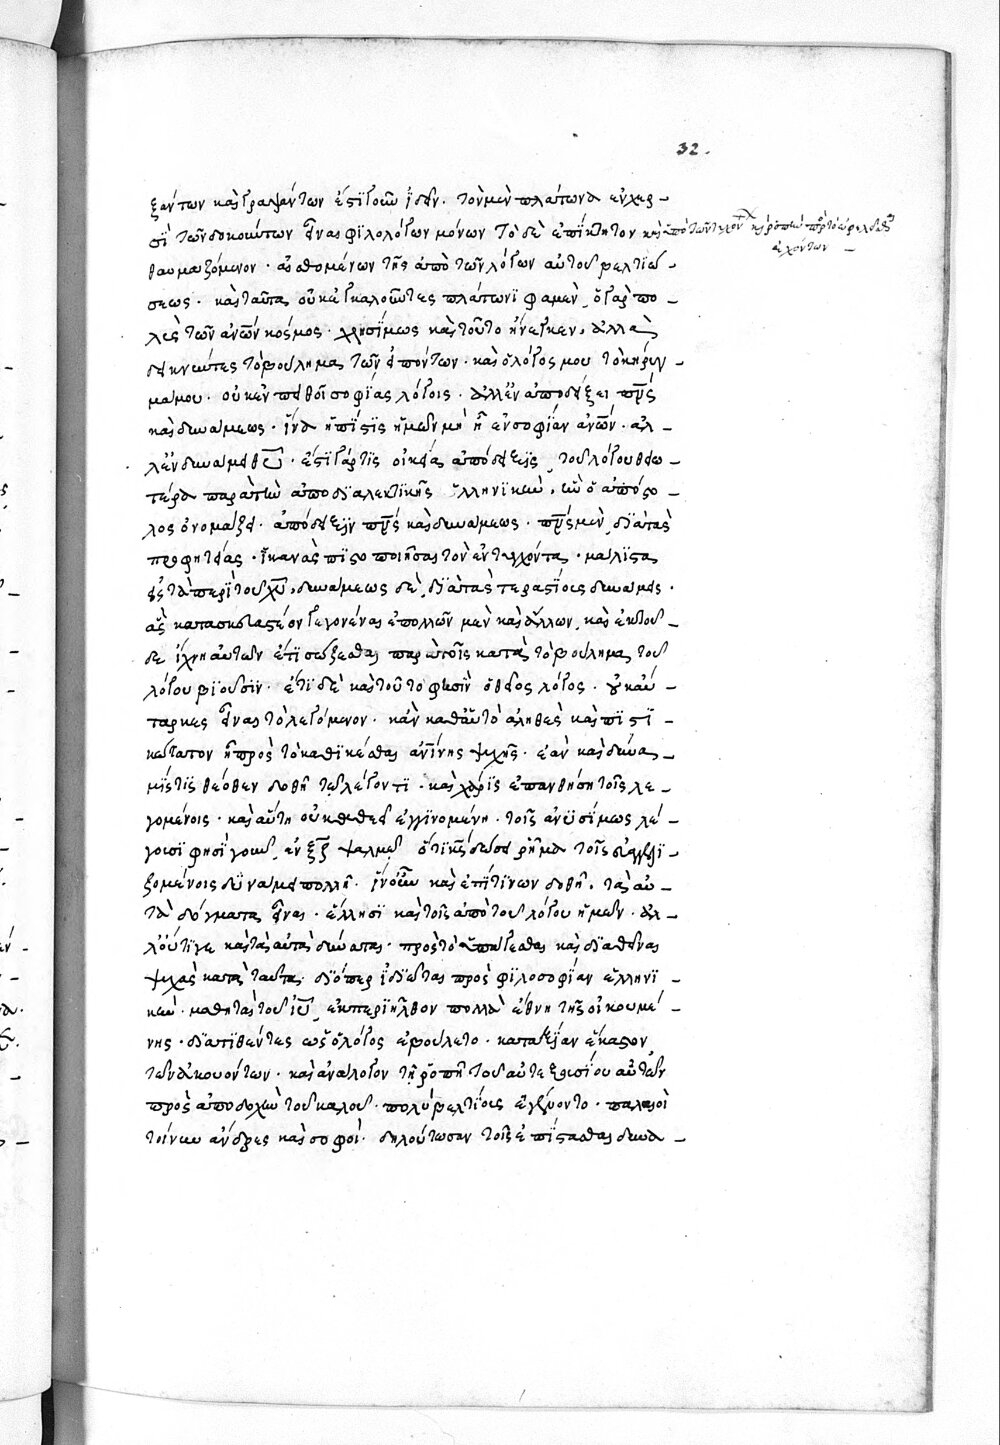 32.
ξάντων καὶ γραψάντων ἔστι γοῦν ἰδεῖν. τὸν μὲν πλάτωνα ἐν χερ –
σὶ τῶν δοκούντων εἶναι φιλολόγων μόνων τὸ δὲ ἐπίκτητον καὶ ὑπὸ τῶν τυχόντων καὶ ῥοπὴν πρὸς τὸ ὠφελεῖσθαι
ἐχόντων –
θαυμαζόμενον. αἰσθομένων τῆς ἀπὸ τῶν λόγων αὐτοῦ βελτιώ –
σεως. καὶ ταῦτα οὐκ ἐγκαλοῦντες πλάτωνι φαμὲν, ὁ γὰρ πο –
λὺς τῶν ἀνων κόσμος. χρησίμως καὶ τοῦτο ἤνεγκεν, ἀλλὰ
δεικνύντες τὸ βούλημα τῶν εἰπόντων. καὶ ὁ λόγος μου τὸ κήρυγ –
μα μου. οὐκ ἐν πειθοῖ σοφίας λόγοις. ἀλλ' ἐν ἀποδείξει πνς
καὶ δυνάμεως. ἵνα ἡ πίστις ἡμῶν μὴ ᾖ ἐν σοφίᾳ ἀνων. ἀλ –
λ' ἐν δυνάμει θυ. ἔστι γάρ τις οἰκεία ἀπόδειξις τοῦ λόγου θειο –
τέρα παρὰ τὴν ἀπὸ διαλεκτικῆς ἑλληνικὴν, ἣν ὁ ἀπόστο –
λος ὀνομάζει. ἀπόδειξιν πνς καὶ δυνάμεως. πνς μὲν, διὰ τὰς
προφητείας. ἱκανὰς πιστοποιῆσαι τὸν ἐντυγχάνοντα. μάλιστα
εἰς τὰ περὶ τοῦ χυ, δυνάμεως δὲ, διὰ τὰς τεραστίους δυνάμεις.
ἃς κατασκευαστέον γεγονέναι ἐκ πολλῶν μὲν καὶ ἄλλων, καὶ ἐκ τοῦ –
δε ἴχνη αὐτῶν ἔτι σώζεσθαι παρὰ τοῖς κατὰ τὸ βούλημα τοῦ
λόγου βιοῦσιν. ἔτι δὲ καὶ τοῦτο φησὶν ὁ θεῖος λόγος. οὐκ αὔ –
ταρκες εἶναι τὸ λεγόμενον. κἂν καθ' αὑτὸ ἀληθὲς καὶ πιστι –
κώτατον ᾖ πρὸς τὸ καθικέσθαι ἀνίνης ψυχῆς. ἐὰν καὶ δύνα –
μίς τις θεόθεν δοθῇ τῷ λέγοντι. καὶ χάρις ἐπανθήσῃ τοῖς λε –
γομένοις. καὶ αὕτη οὐκ ἀθεεὶ ἐγγινομένη. τοῖς ἀνυσίμως λέ –
γουσι φησὶ γοῦν, ἐν ξζ ψαλμῷ ὅτι κς δώσει ῥῆμα τοῖς εὐαγγελι –
ζομένοις δυνάμει πολλῇ. ἵν' οὖν καὶ ἐπί τινων δοθῇ. τὰ αὐ –
τὰ δόγματα εἶναι. ἕλλησι καὶ τοῖς ἀπὸ τοῦ λόγου ἡμῶν. ἀλ –
λ' οὔτι γε καὶ τὰ αὐτὰ δύναται. πρὸς τὸ ὑπαγαγέσθαι καὶ διαθεῖναι
ψυχὰς κατὰ ταῦτα. διόπερ ἰδιῶται πρὸς φιλοσοφίαν ἑλληνι –
κὴν. μαθηταὶ τοῦ ἰυ, ἐκπεριῆλθον πολλὰ ἔθνη τῆς οἰκουμέ –
νης. διατιθέντες ὡς ὁ λόγος ἐβούλετο. κατ' ἀξίαν ἕκαστον
τῶν ἀκουόντων. καὶ ἀνάλογον τῇ ῥοπῇ τοῦ αὐτεξουσίου αὐτῶν
πρὸς ἀποδοχὴν τοῦ καλοῦ. πολὺ βελτίους ἐγένοντο. παλαιοὶ
τοίνυν ἄνδρες καὶ σοφοί. δηλούτωσαν τοῖς ἐπίστασθαι δυνα –